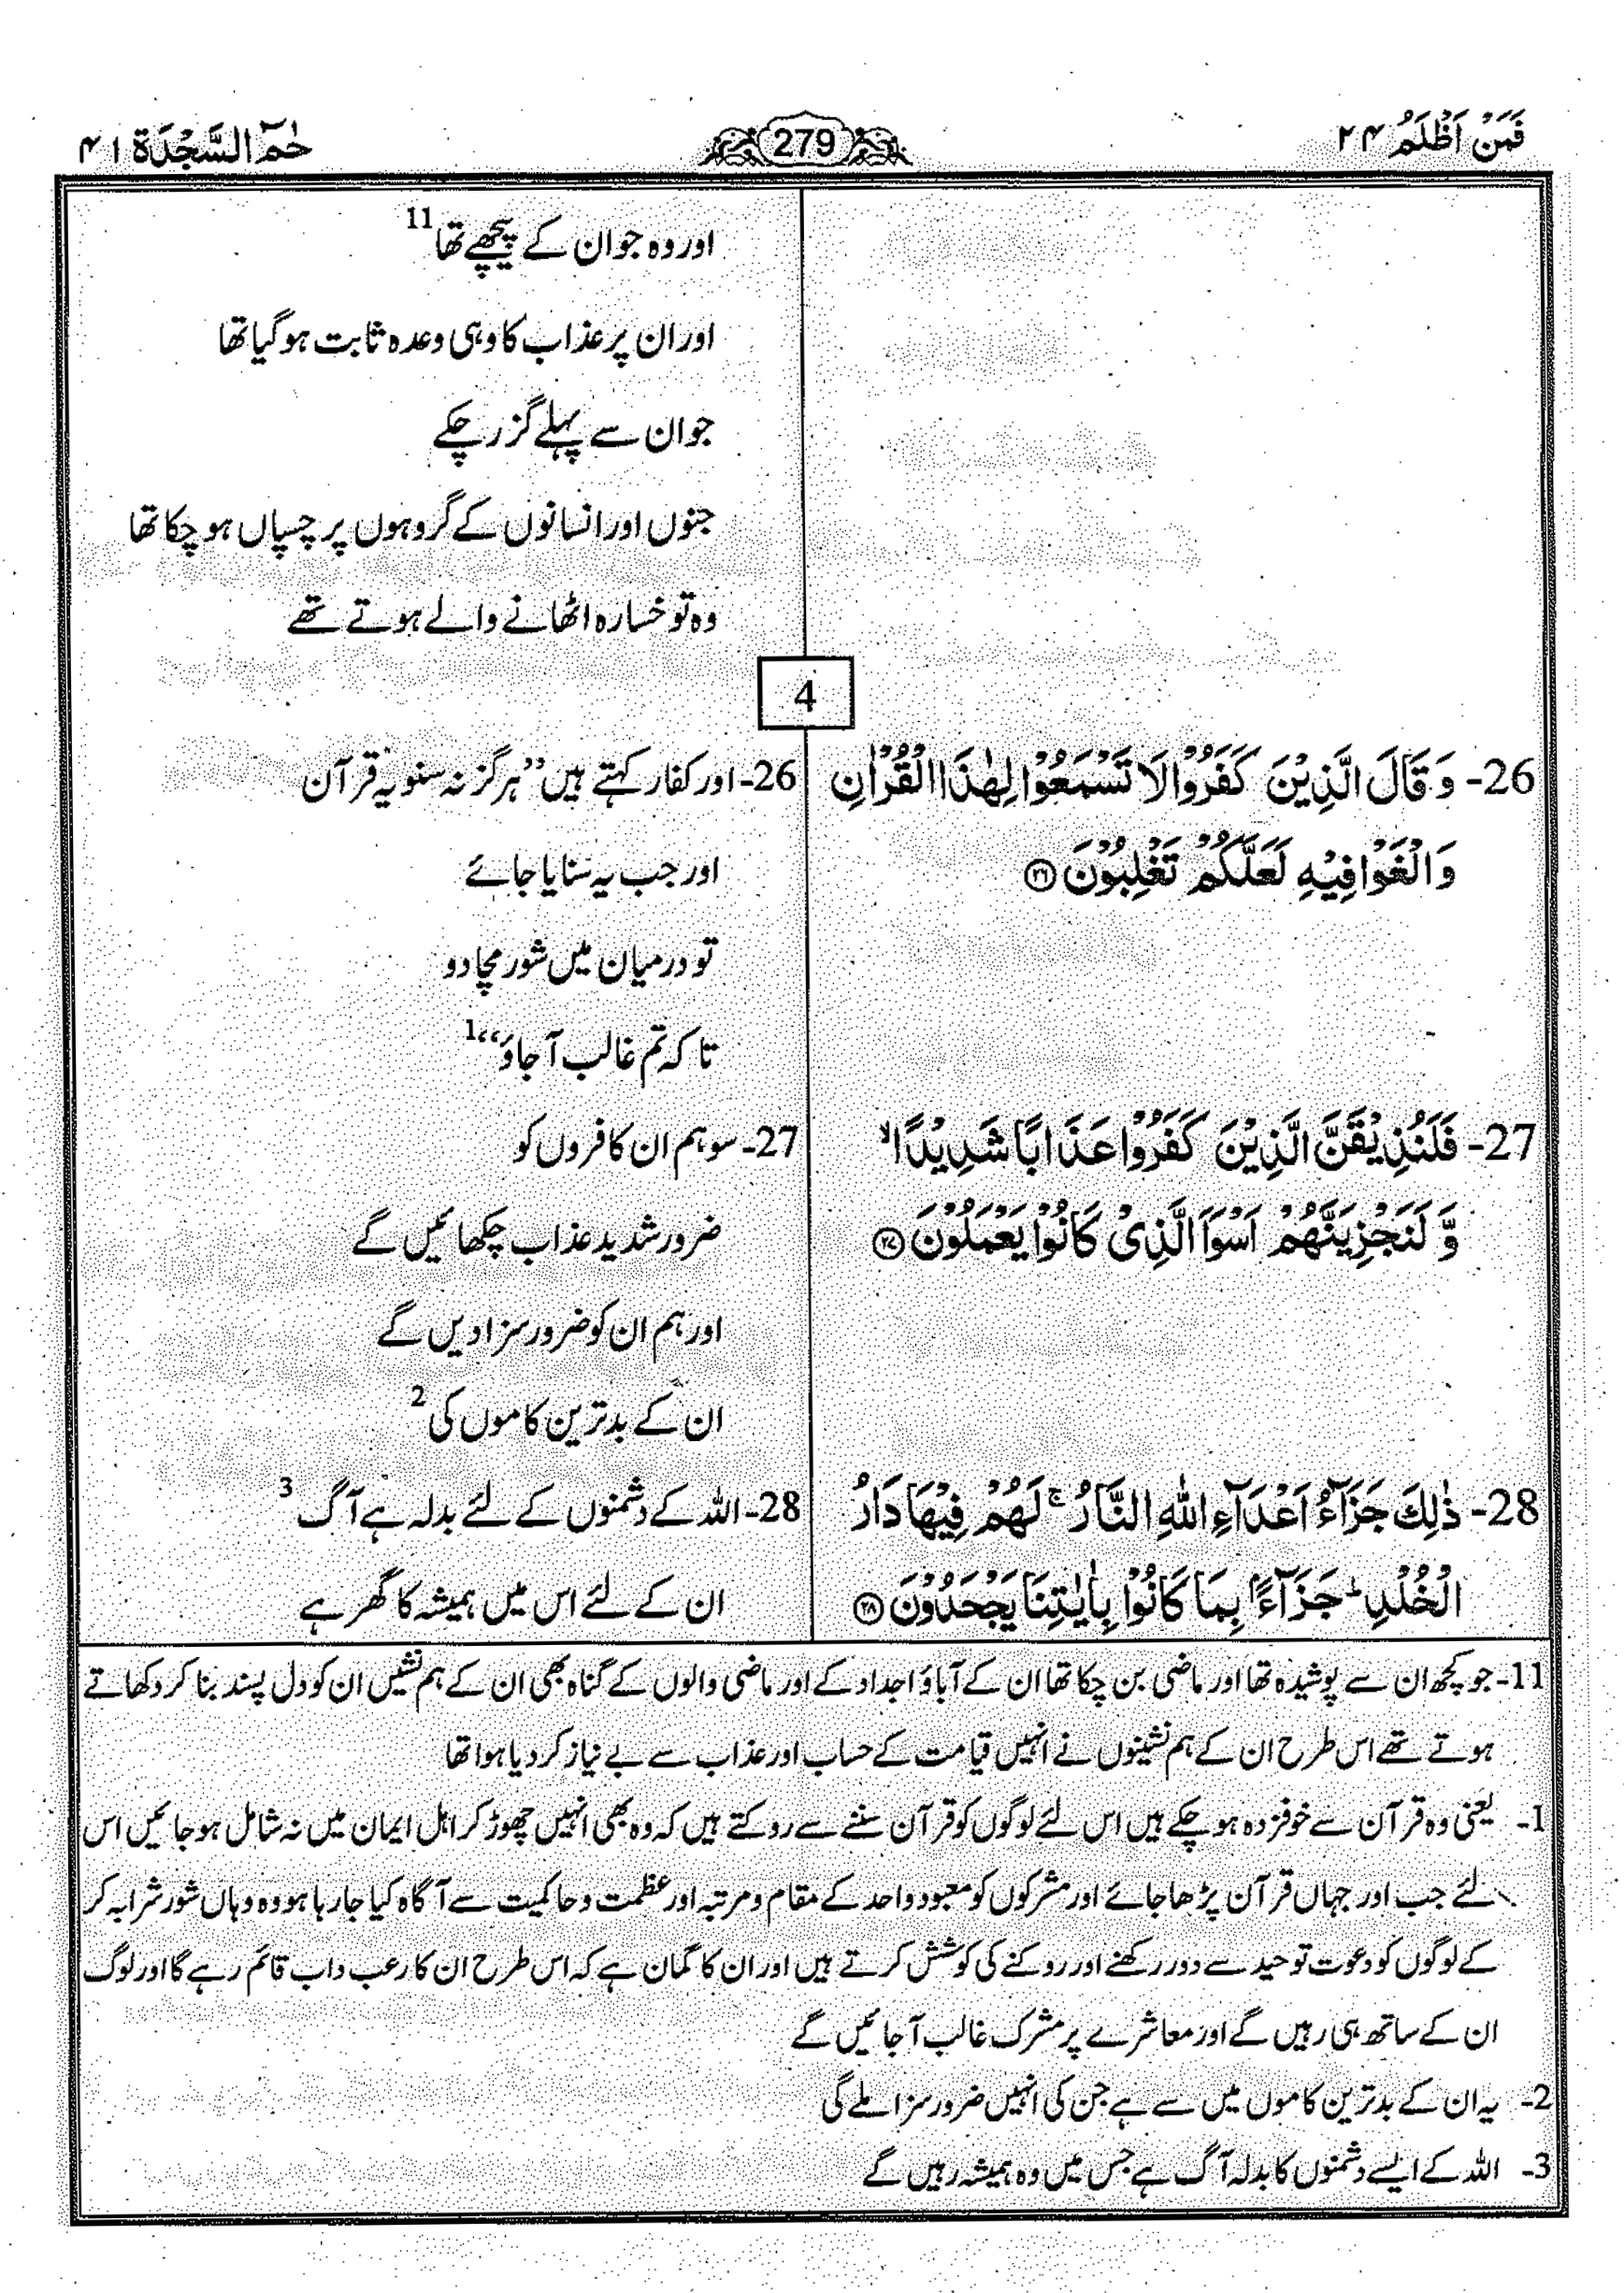 فَمَنْ اَظْلَمُ ۲۴
279
حٰمٓ السَّجْدَة ۴۱
اور وہ جو ان کے پیچھے تھا 11
اور ان پر عذاب کا وہی وعدہ ثابت ہو گیا تھا
جو ان سے پہلے گزر چکے
جنوں اور انسانوں کے گروہوں پر چسپاں ہو چکا تھا
وہ تو خسارہ اٹھانے والے ہوتے تھے
4
26- وَ قَالَ الَّذِيْنَ كَفَرُوْا لَا تَسْمَعُوْا لِهٰذَا الْقُرْاٰنِ
وَ الْغَوْا فِيْهِ لَعَلَّكُمْ تَغْلِبُوْنَ ۝۲۶
26- اور کفار کہتے ہیں ’’ہرگز نہ سنو یہ قرآن
اور جب یہ سنایا جائے
تو درمیان میں شور مچا دو
تا کہ تم غالب آ جاؤ‘‘ 1
27- فَلَنُذِيْقَنَّ الَّذِيْنَ كَفَرُوْا عَذَابًا شَدِيْدًا ۙ
وَّ لَنَجْزِيَنَّهُمْ اَسْوَاَ الَّذِىْ كَانُوْا يَعْمَلُوْنَ ۝۲۷
27- سو ہم ان کافروں کو
ضرور شدید عذاب چکھائیں گے
اور ہم ان کو ضرور سزا دیں گے
ان کے بدترین کاموں کی 2
28- ذٰلِكَ جَزَآءُ اَعْدَآءِ اللّٰهِ النَّارُ ۚ لَهُمْ فِيْهَا دَارُ
الْخُلْدِ ؕ جَزَآءًۢ بِمَا كَانُوْا بِاٰيٰتِنَا يَجْحَدُوْنَ ۝۲۸
28- اللہ کے دشمنوں کے لئے بدلہ ہے آگ 3
ان کے لئے اس میں ہمیشہ کا گھر ہے
11- جو کچھ ان سے پوشیدہ تھا اور ماضی بن چکا تھا ان کے آباؤ اجداد کے اور ماضی والوں کے گناہ بھی ان کے ہم نشیں ان کو دل پسند بنا کر دکھاتے
ہوتے تھے اس طرح ان کے ہم نشینوں نے انہیں قیامت کے حساب اور عذاب سے بے نیاز کر دیا ہوا تھا
1- یعنی وہ قرآن سے خوفزدہ ہو چکے ہیں اس لئے لوگوں کو قرآن سننے سے روکتے ہیں کہ وہ بھی انہیں چھوڑ کر اہل ایمان میں نہ شامل ہو جائیں اس
لئے جب اور جہاں قرآن پڑھا جائے اور مشرکوں کو معبود واحد کے مقام و مرتبہ اور عظمت و حاکمیت سے آگاہ کیا جا رہا ہو وہ وہاں شور شرابہ کر
کے لوگوں کو دعوت توحید سے دور رکھنے اور روکنے کی کوشش کرتے ہیں اور ان کا گمان ہے کہ اس طرح ان کا رعب داب قائم رہے گا اور لوگ
ان کے ساتھ ہی رہیں گے اور معاشرے پر مشرک غالب آ جائیں گے
2- یہ ان کے بدترین کاموں میں سے ہے جن کی انہیں ضرور سزا ملے گی
3- اللہ کے ایسے دشمنوں کا بدلہ آگ ہے جس میں وہ ہمیشہ رہیں گے